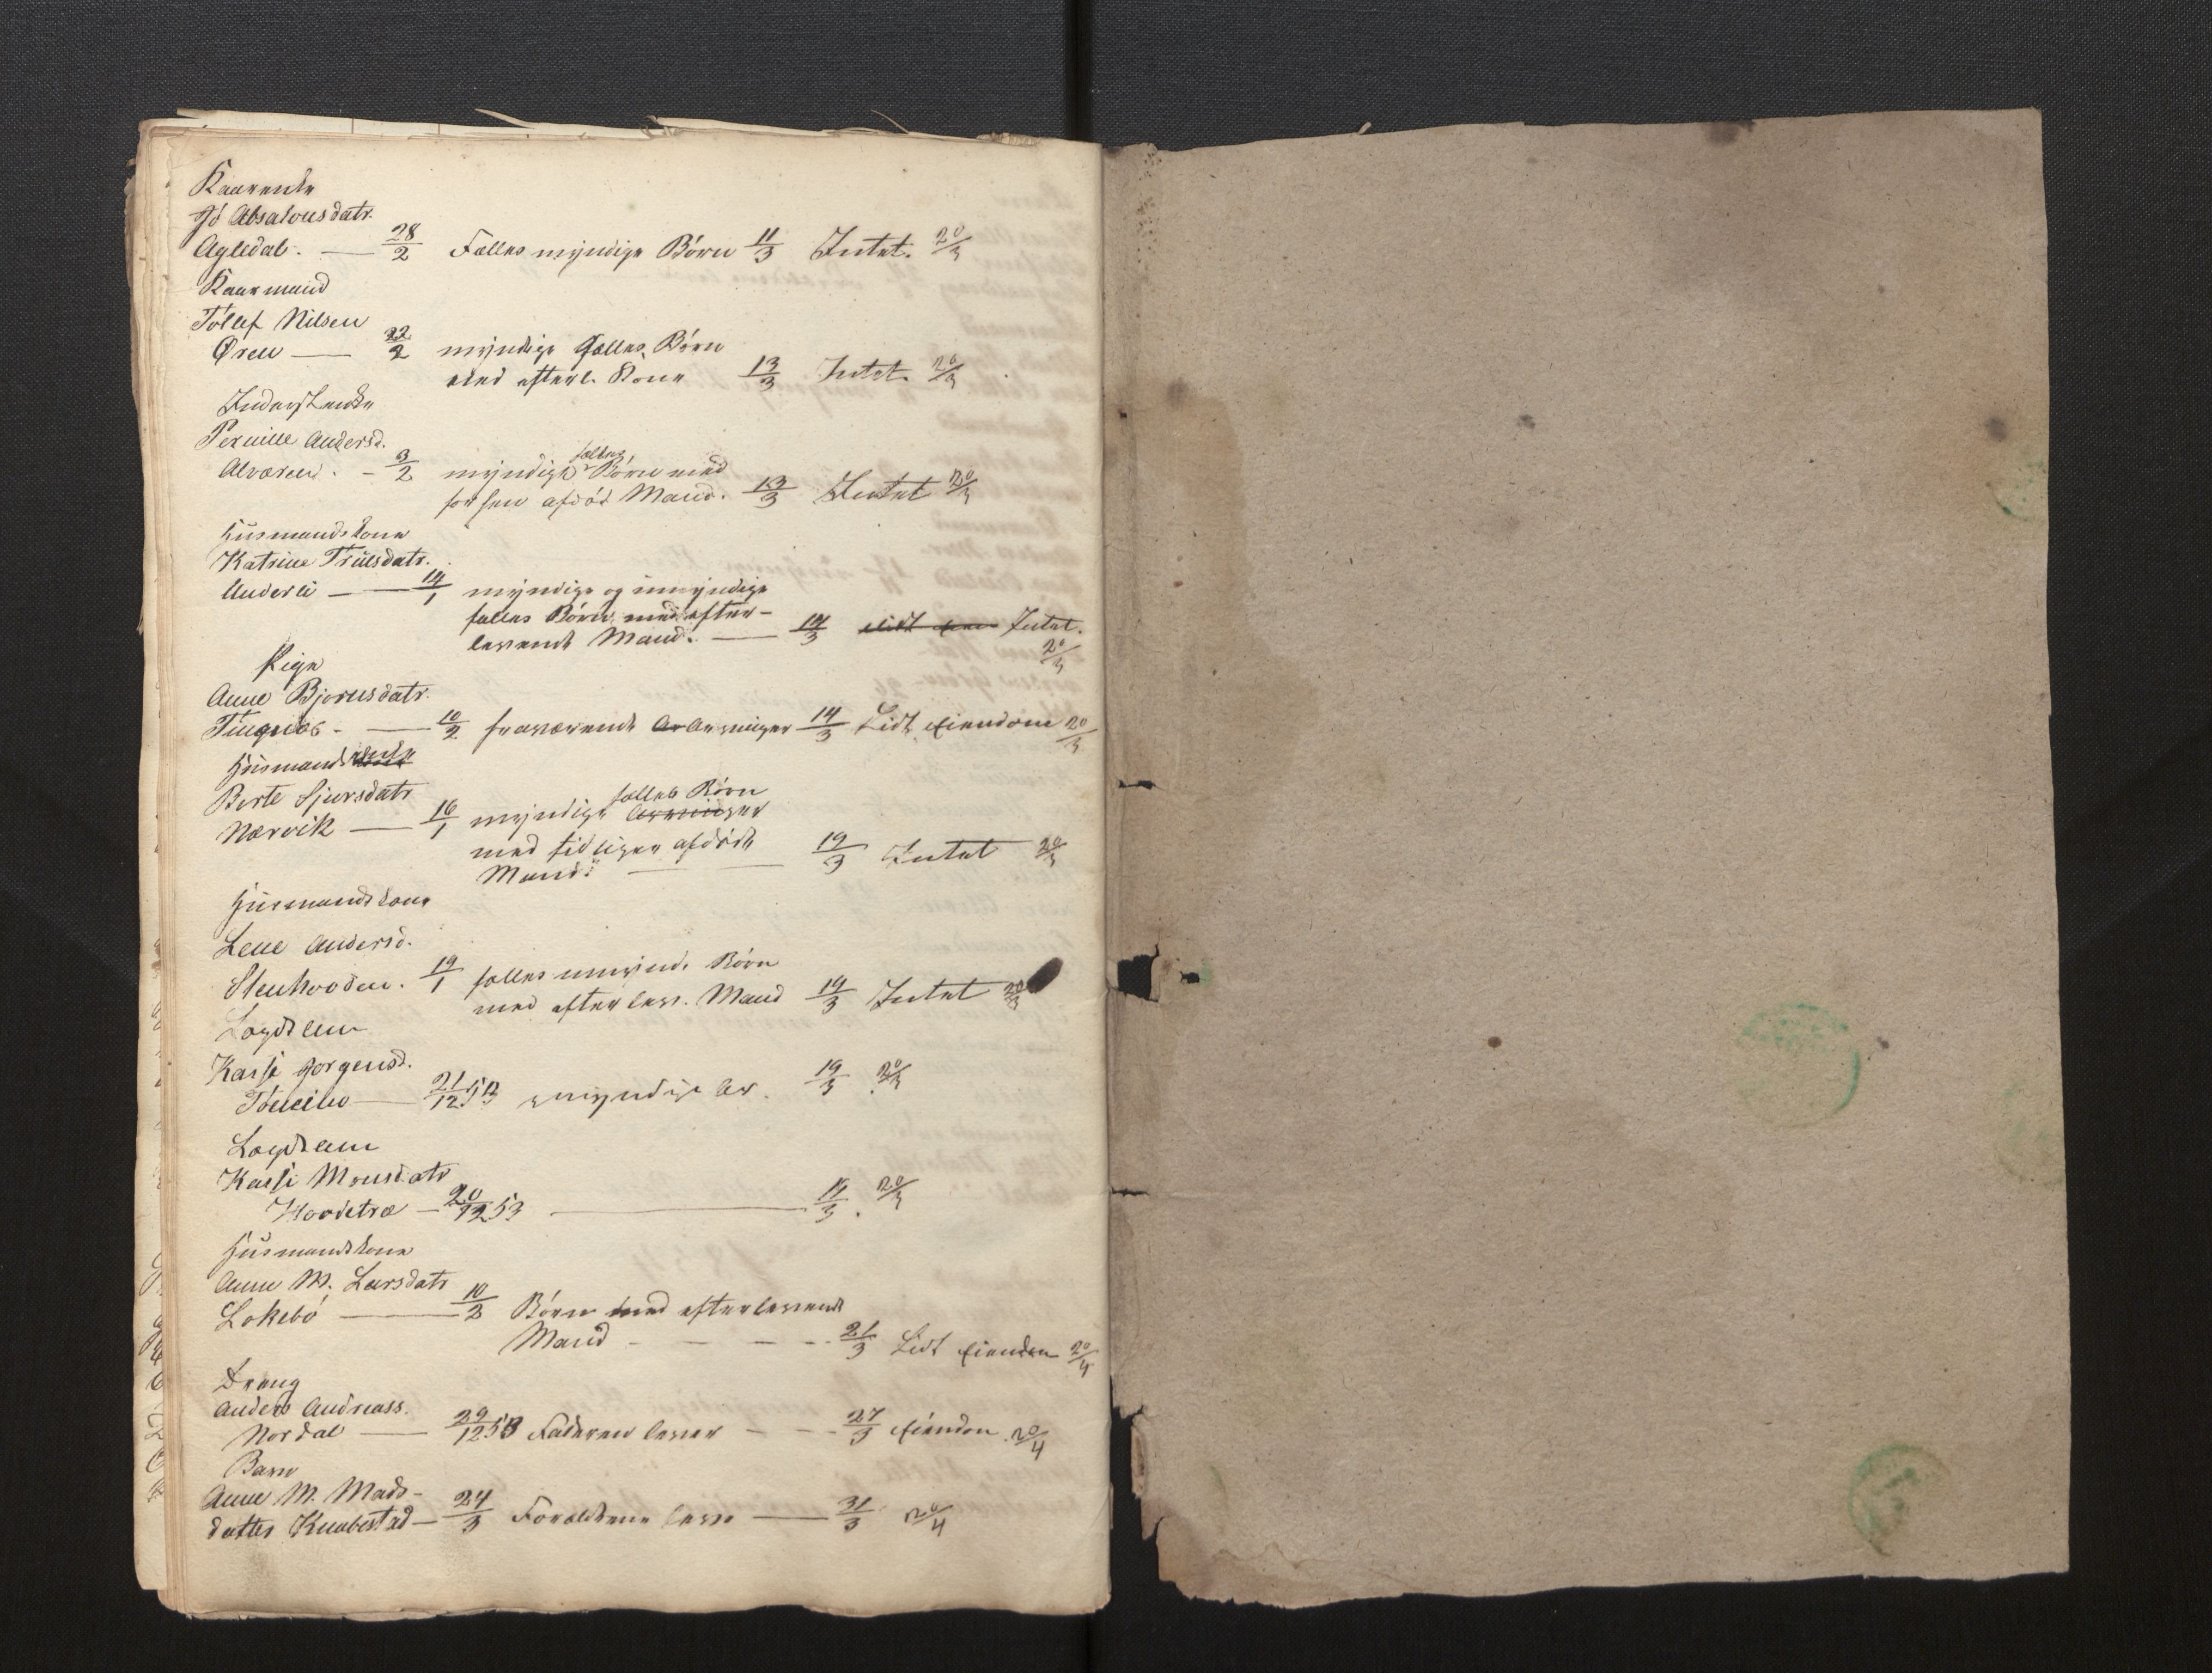 Kaarenke
Jó Absalonsdatr.
Agledal. — 28/2 Fælles myndige Børn 11/3 Intet. 20/3
Kaarmand
Tollef Nilsen
Øren — 22/2 myndige fælles Børn
med efterl. Kone 13/3 Intet. 20/3
Inderstenke
Pernille Andersd.
Alværen. - 3/2 myndige fælles Børn med
forhen afdød Mand. 13/3 Intet 20/3
Huusmandskone
Katrine Trulsdatr.
Anderli — 14/1 myndige og umyndige
fælles Børn med efter-
levende Mand. — 14/3 Lidt Eien Intet.
20/3
Pige
Anne Bjornsdatr.
Tingnæs. — 10/2 fraværende Ar Arvinger 14/3 Lidt Eiendom 20/3
Huusmandsenke
Berte Sjursdatr
Nærvik — 16/1 myndige fælles Børn Arvinger
med tidligere afdøde
Mand. — 19/3 Intet 20/3
Huusmandskone
Lene Andersd.
Stenhovden. 19/1 fælles umynd. Børn
med efterlev. Mand 19/3 Intet 20/3
Lægdslem
Karsi Jorgensd.
— 21/12 53 myndige Ar. 19/3 20/3
Lægdslem
Karsi Monsdatr
Hovdetræ — 20/12 53 — 19/3. 20/3
Huusmandskone
Anne M. Larsdatr
Løkebø — 10/2 Børn med efterlevende
Mand - — - - 21/3 Lidt Eiendom 20/4
Dreng
Anders Andreass.
Nordal — 29/12 53 Faderen lever - - - 27/3 Eiendom 20/4
Barn
Anne M. Mads-
datter Knabestad — 24/3 Forældrene leve — 31/3 20/4